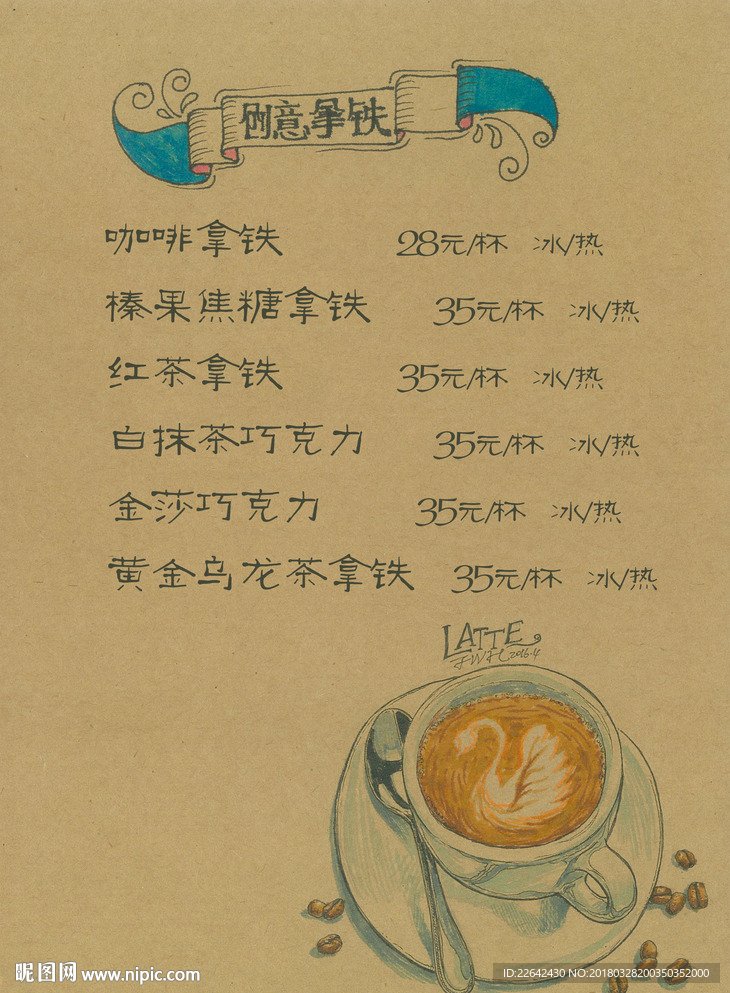 创意拿铁
咖啡拿铁 28元/杯 冰/热
榛果焦糖拿铁 35元/杯 冰/热
红茶拿铁 35元/杯 冰/热
白抹茶巧克力 35元/杯 冰/热
金莎巧克力 35元/杯 冰/热
黄金乌龙茶拿铁 35元/杯 冰/热
LATTE
2016.4
昵图网 www.nipic.com
ID:22642430 NO:20180328200350352000